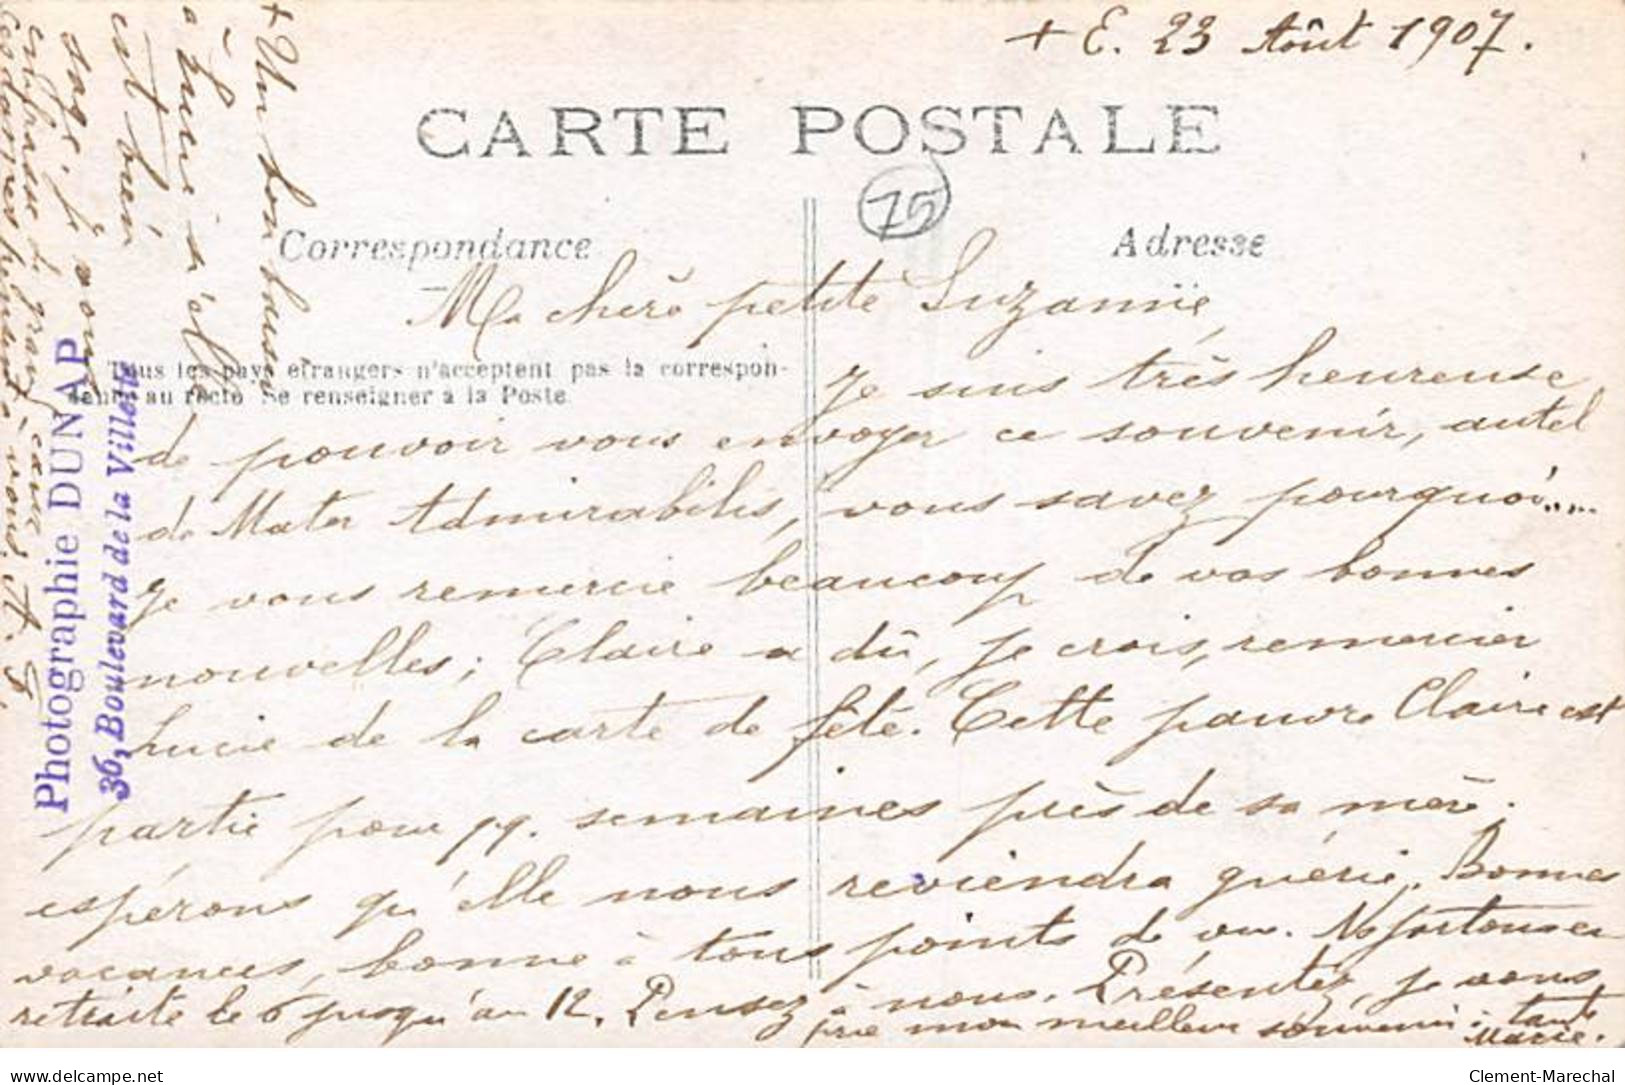 + E. 23 Août 1907.
CARTE POSTALE
75
Correspondance
Adresse
Ma chère petite Suzanne,
Tous les pays étrangers n'acceptent pas la correspon-
dance au recto Se renseigner à la Poste
Je suis très heureuse
de pouvoir vous envoyer ce souvenir, autel
de Mater Admirabilis, vous savez pourquoi....
Je vous remercie beaucoup de vos bonnes
nouvelles; Claire a dû, je crois, remercier
Lucie de la carte de fête. Cette pauvre Claire est
partie pour qq. semaines près de sa mère.
espérons qu'elle nous reviendra guérie. Bonnes
vacances, bonne à tous points de vue. Nous
retraite le 6 jusqu'au 12. Pensez à nous. Présentez, je vous
prie mon meilleur souvenir à tante
Marie.
+ Un bon baiser
à Lucie si elle
est bien
sage. Je vous
embrasse de grand cœur
pensent à vous. A. S.
Photographie DUNAP
36, Boulevard de la Villette
www.delcampe.net
Clement-Marechal